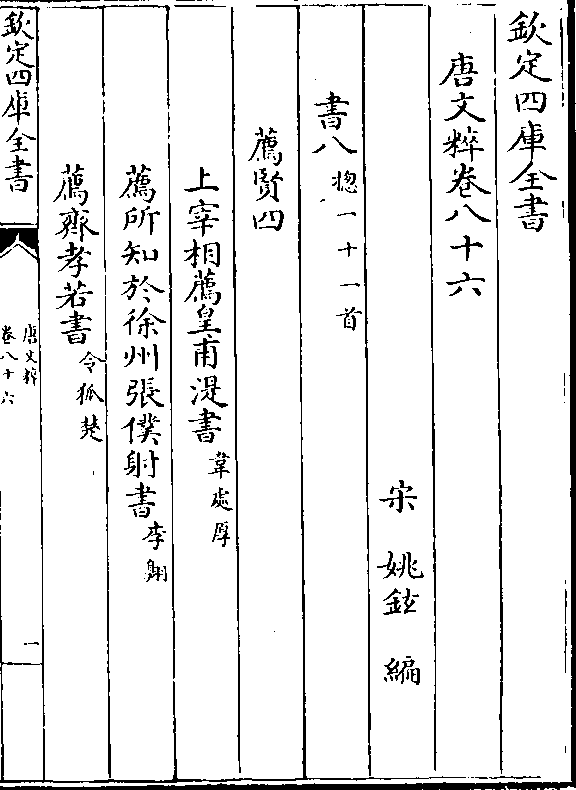 欽定四庫全書
唐文粹卷八十六
宋 姚鉉 編
書八 揔一十一首
薦賢四
上宰相薦皇甫湜書 韋處厚
薦所知於徐州張僕射書 李翺
薦齊孝若書 令狐楚
欽定四庫全書
唐文粹
卷八十六
一